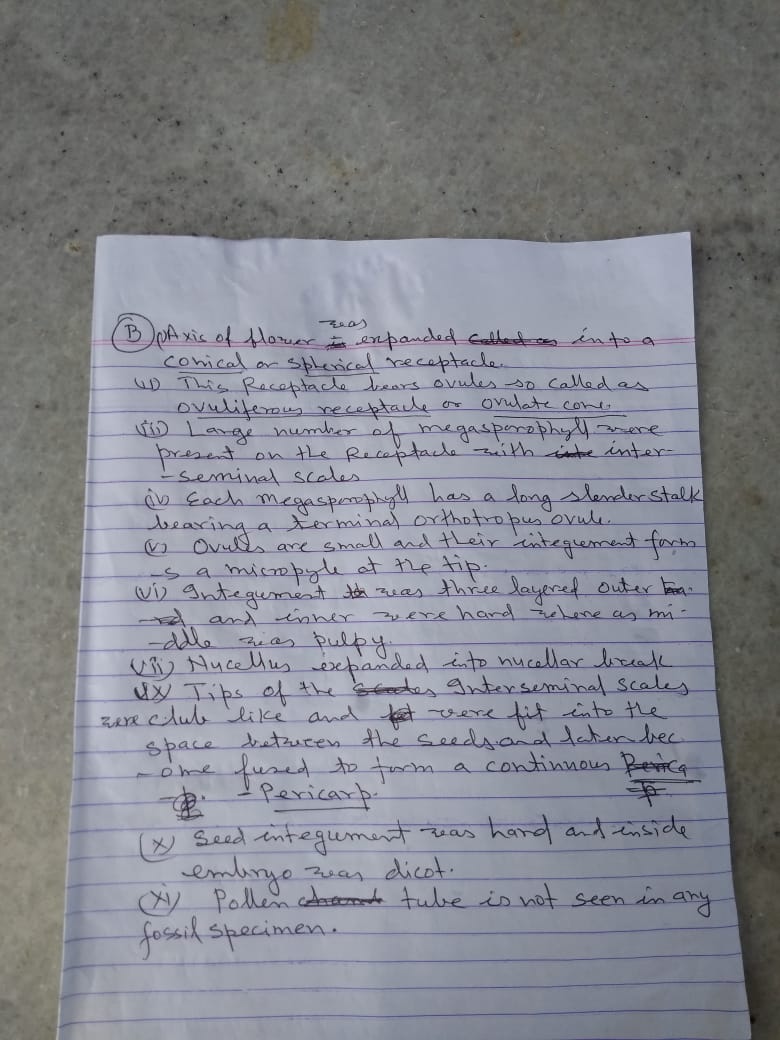 (B) (i) Axis of flower was expanded into a
conical or spherical receptacle.
(ii) This Receptacle bears ovules so called as
ovuliferous receptacle or ovulate cone.
(iii) Large number of megasporophyll were
present on the Receptacle with inter-
-seminal scales
(iv) Each megasporophyll has a long slender stalk
bearing a terminal orthotropus ovule.
(v) Ovules are small and their integument form
-s a micropyle at the tip.
(vi) Integument was three layered outer
and inner were hard where as mi-
-ddle was pulpy.
(vii) Nucellus expanded into nucellar break
ix) Tips of the Interseminal scales
were club like and were fit into the
space between the seeds and later bec
-ome fused to form a continuous
-Pericarp.
(x) Seed integument was hard and inside
embryo was dicot.
(xi) Pollen tube is not seen in any
fossil specimen.